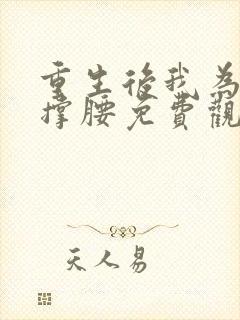 重生後我為
撐腰免費觀
天人易